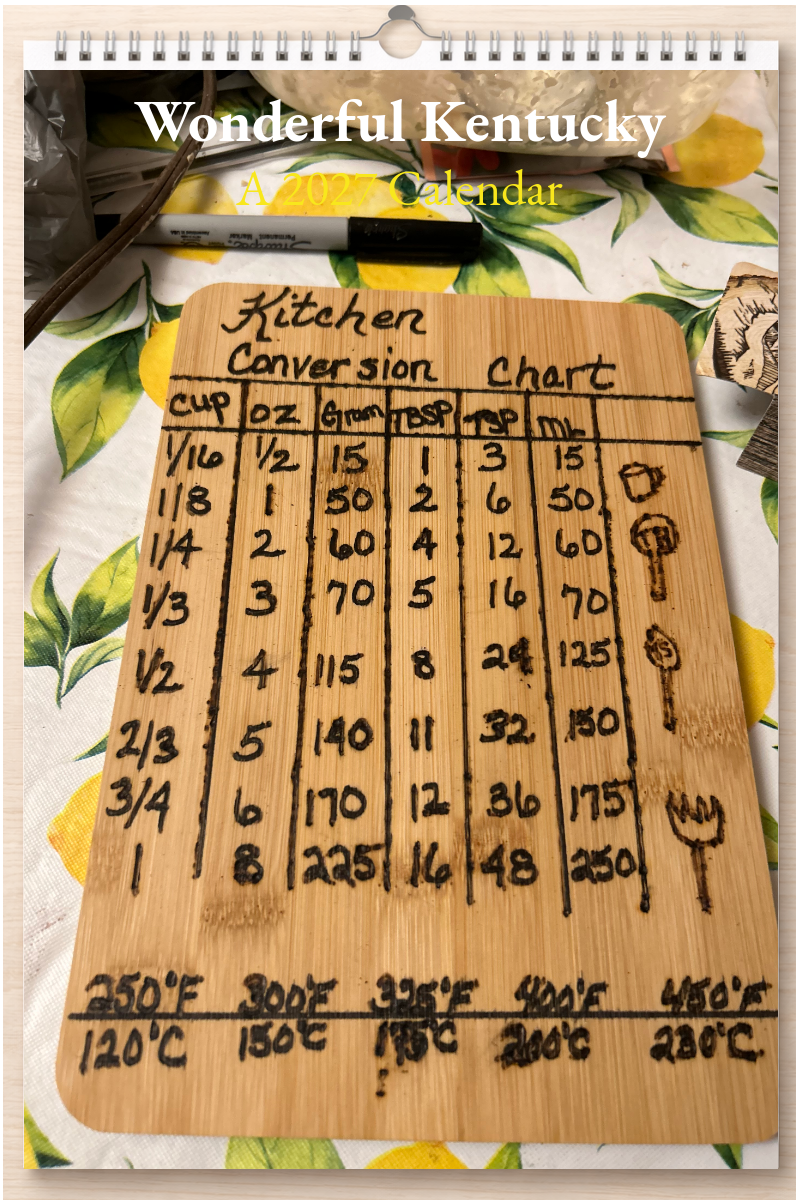 Wonderful Kentucky
A 2027 Calendar
Sharpie.
Permanent Marker
Kitchen
Conversion Chart
CUP OZ Gram TBSP TSP ML
1/16 1/2 15 1 3 15
1/8 1 50 2 6 50
1/4 2 60 4 12 60
1/3 3 70 5 16 70
1/2 4 115 8 24 125
2/3 5 140 11 32 150
3/4 6 170 12 36 175
1 8 225 16 48 250
250°F 300°F 325°F 400°F 450°F
120°C 150°C 175°C 200°C 230°C